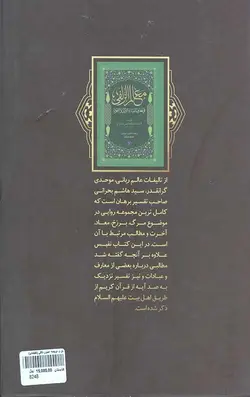 معالم الزلفی
از تالیفات عالم ربانی، موحدی
گرانقدر، سید هاشم بحرانی
صاحب تفسیر برهان است که
کامل ترین مجموعه روایی در
موضوع مرگ، برزخ، معاد،
آخرت و مطالب مرتبط با آن
است. در این کتاب نفیس
علاوه بر آنچه گفته شد
مطالبی درباره بعضی از معارف
و عبادات و نیز تفسیر نزدیک
به صد آیه از قرآن کریم از
طریق اهل بیت علیهم السلام
ذکر شده است.
8248